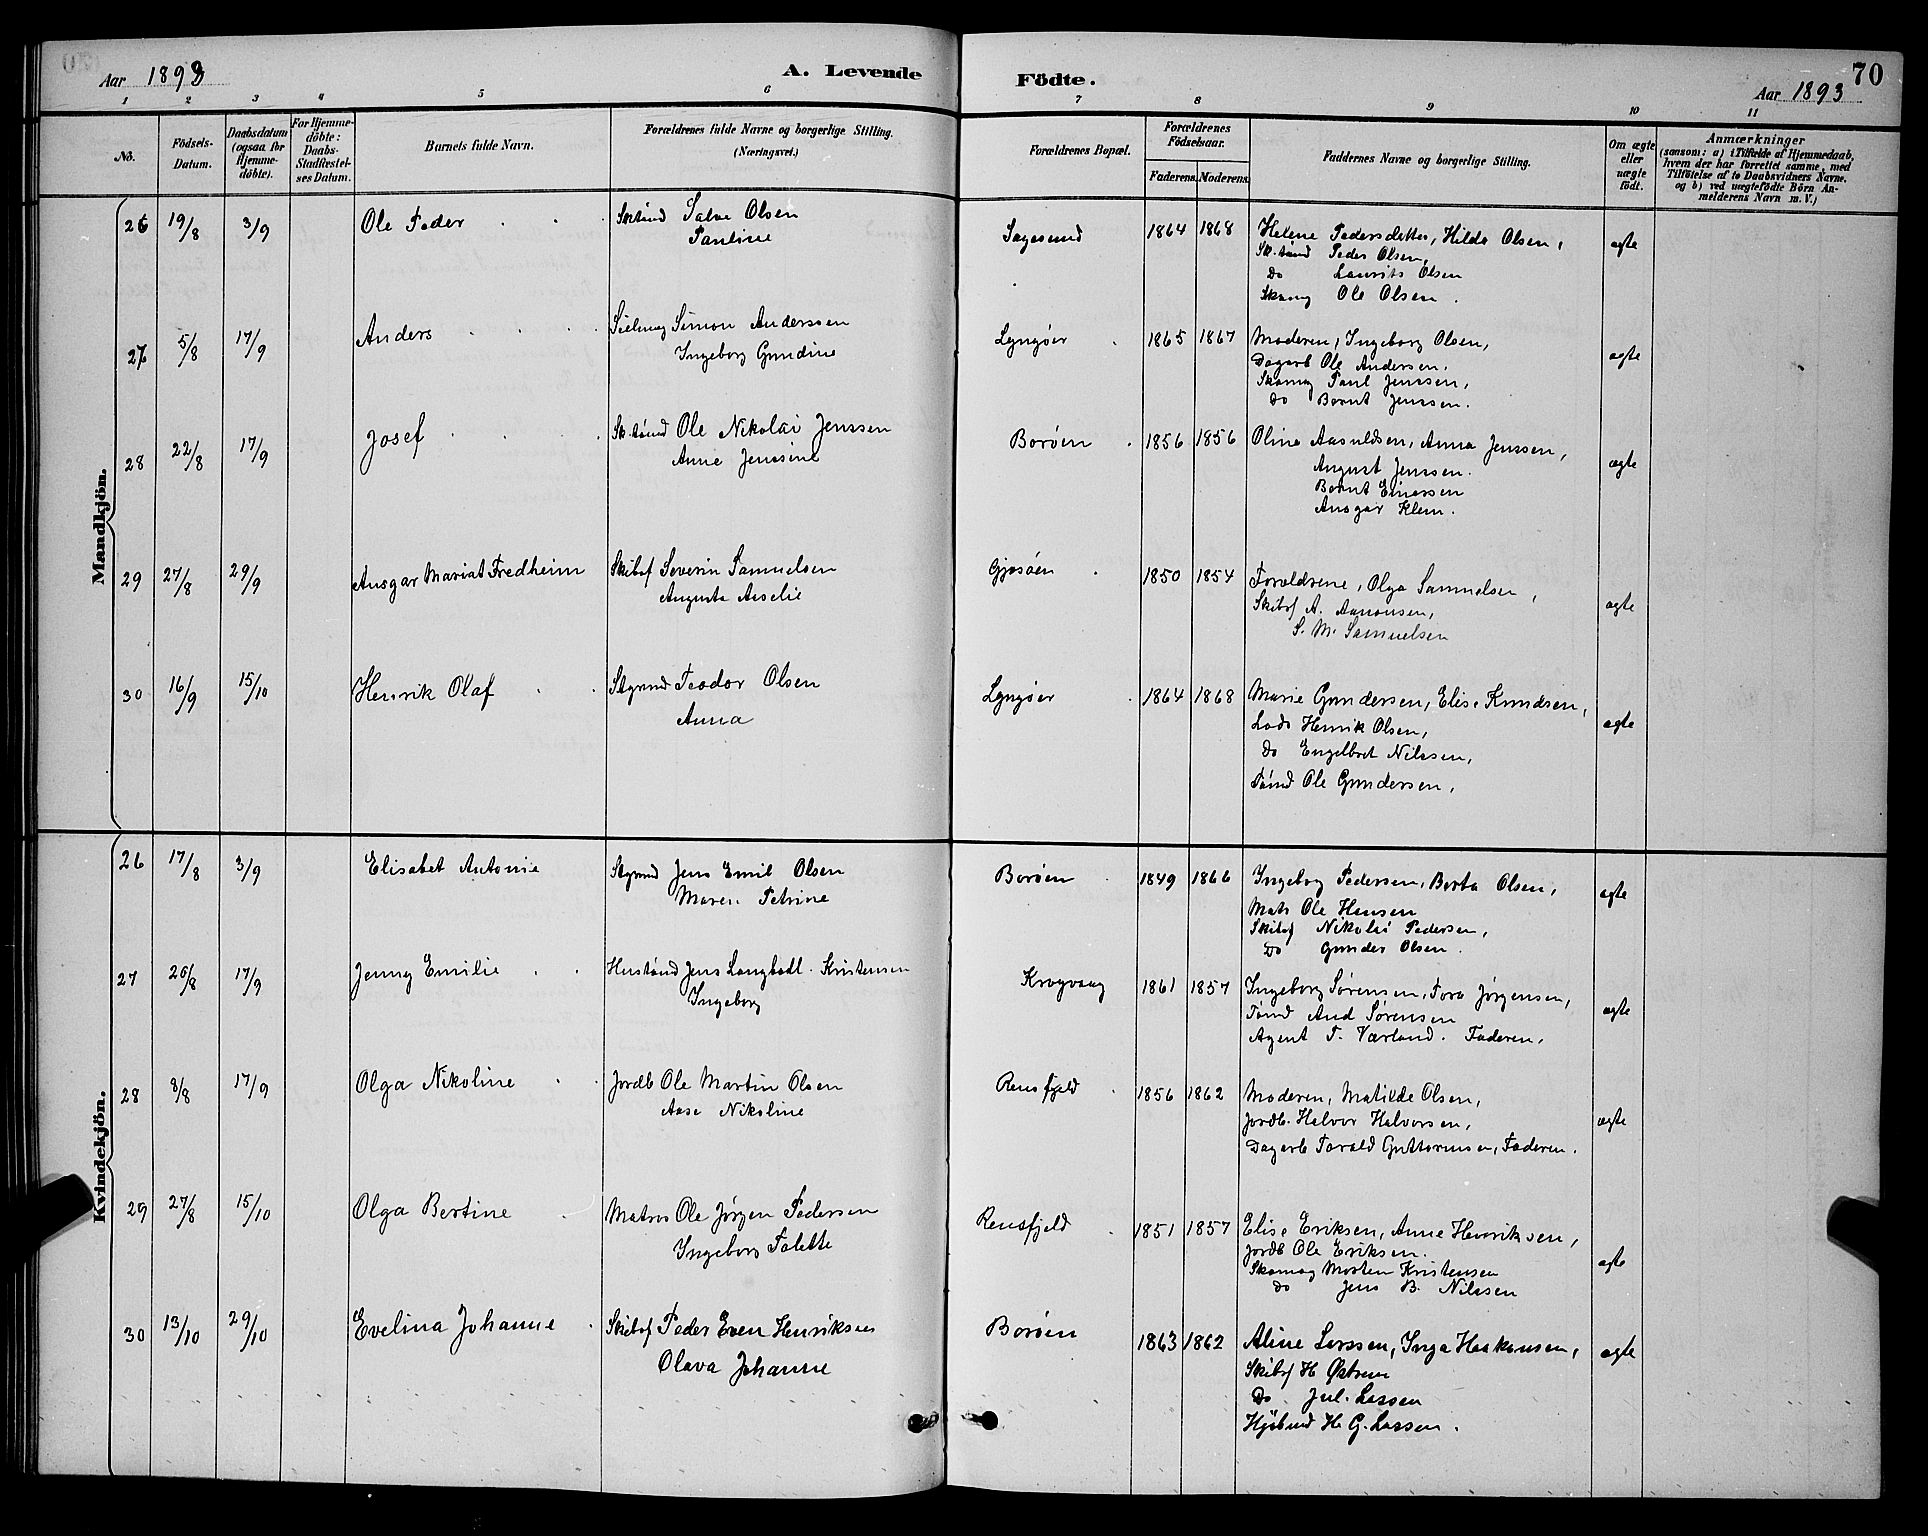 Aar 1893 A. Levende Födte. Aar 1893 70
1 2 3 4 5 6 7 8 9 10 11
No.
Födsels-Datum.
Daabsdatum (ogsaa for Hjemme-döbte).
For Hjemme-döbte: Daabs-Stadfæstelses Datum.
Barnets fulde Navn.
Forældrenes fulde Navne og borgerlige Stilling. (Næringsvei.)
Forældrenes Bopæl.
Forældrenes Födselsaar.
Faderens. Moderens.
Faddernes Navne og borgerlige Stilling.
Om ægte eller uægte födt.
Anmærkninger (saasom: a) i Tilfælde af Hjemmedaab, hvem der har forrettet samme, med Tilföielse af to Daabsvidners Navne, og b) ved uægtefödte Börn Anmelderens Navn m. V.)
Mandkjön.
26 19/8 3/9 Ole Peder Sktønd Salve Olsen
Pauline
Sagesund 1864 1868 Helene Pedersdatter, Hilda Olsen,
Sk.tønd Peder Olsen,
Do Laurits Olsen
Skomg Ole Olsen.
ægte
27 5/8 17/9 Anders Simon Anderssen
Ingeborg Gundine
Lyngøer 1865 1867 Moderen, Ingeborg Olsen,
Dagarb Ole Andersen,
Skomag Paul Jenssen,
Do Bernt Jenssen.
ægte
28 22/8 17/9 Josef Sk.tønd Ole Nikolai Jenssen
Anne Jenssine
Borøen 1856 1856 Olina Aasuldsen, Anna Jenssen,
August Jenssen.
Bernt Einersen
Ansgar Klem.
ægte
29 27/8 29/9 Ansgar Mariat Fredheim Skibsf Severin Samuelsen
Augusta Aselie
Gjesøen 1850 1854 Forældrene, Olga Samuelsen,
Skibsf A. Aanonsen,
S. M. Samuelsen
ægte
30 16/9 15/10 Henrik Olaf Styrmd Teodor Olsen
Anna
Lyngøer 1864 1868 Marie Gundersen, Elise Knudsen,
Lods Henrik Olsen,
Do Engelbret Nilssen,
Tømd Ole Gundersen,
ægte
Kvindekjön.
26 17/8 3/9 Elisabet Antonie Styrmd Jens Emil Olsen
Maren Petrine
Borøen 1849 1866 Ingeborg Pedersen, Berta Olsen,
Matr Ole Hansen
Skibsf Nikolai Pedersen,
Do Gunder Olsen.
ægte
27 26/8 17/9 Jenny Emilie Hustømd Jens Kristensen
Ingeborg
Krogvaag 1861 1857 Ingeborg Sørensen, Tora Jørgensen,
Tømd And Sørensen
Agent T. Værland. Faderen,
ægte
28 8/8 17/9 Olga Nikoline Jordb Ole Martin Olsen
Aase Nikoline
Rensfjeld 1856 1862 Moderen, Matilde Olsen,
Jordb. Halvor Halvorsen,
Dagarb Torald Guttormsen, Faderen.
ægte
29 27/8 15/10 Olga Bertine Matros Ole Jørgen Pedersen
Ingeborg Tolette
Rensfjeld 1851 1857 Elise Eriksen, Anne Henriksen,
Jordb Ole Eriksen.
Skomag Morten Kristensen
Do Jens B. Nilssen
ægte
30 13/10 29/10 Evelina Johanne Skibsf Peder Even Henriksen
Olava Johanne
Borøen 1863 1862 Aline Larssen, Inga Haakonsen,
Skibsf H Østrem
Do Jul. Lassen
H. G. Lassen.
ægte